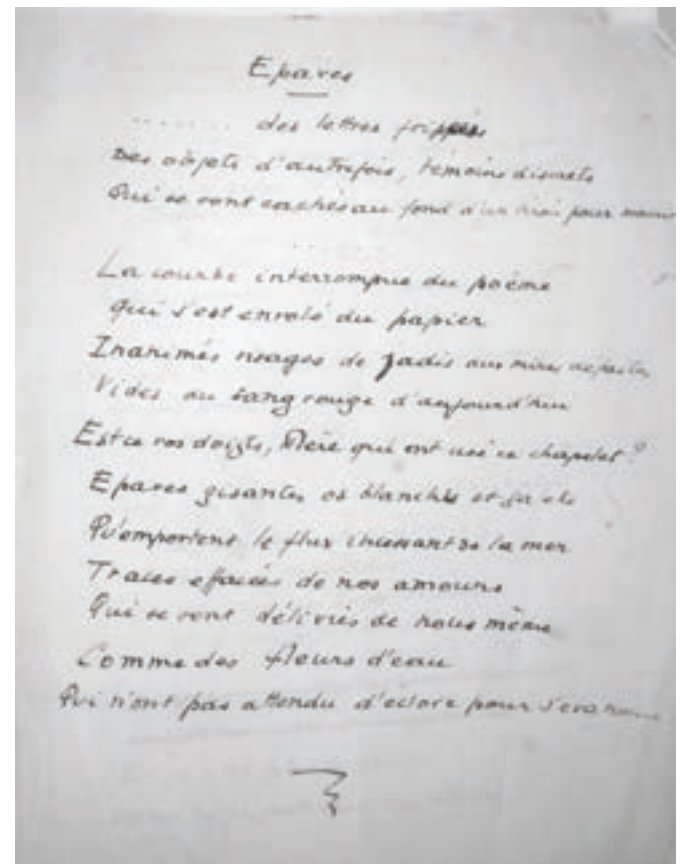 Epaves
........ des lettres frippées
Des objets d'autrefois, témoins discrets
Qui se sont cachés au fond d'un tiroir pour mourir
La courbe interrompue du poème
Qui s'est envolé du papier
Inanimés visages de jadis aux mines défaites
Vides au sang rouge d'aujourd'hui
Est ce vos doigts, Mère qui ont usé ce chapelet ?
Epaves gisantes, os blanchis et galets
Qu'emportent le flux incessant de la mer
Traces effacées de nos amours
Qui se sont délivrés de nous même
Comme des fleurs d'eau
Qui n'ont pas attendu d'éclore pour s'évanouir